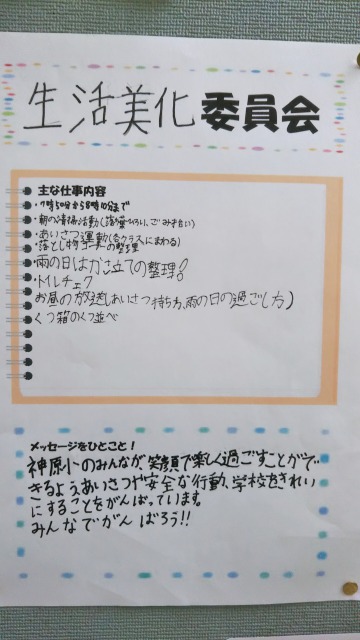 生活美化委員会
主な仕事内容
・7時50分から8時10分まで
・朝の清掃活動(落ち葉ひろい、ごみ拾い)
・あいさつ運動(各クラスにまわる)
・落とし物コーナーの整理
・雨の日はかさ立ての整理!
・トイレチェク
お昼の放送(あいさつ、持ち方、雨の日の過ごし方)
くつ箱のくつ並べ
メッセージをひとこと!
神原小のみんなが笑顔で楽しく過ごすことがで
きるようあいさつや安全な行動、学校をきれい
にすることをがんばっています。
みんなでがんばろう!!